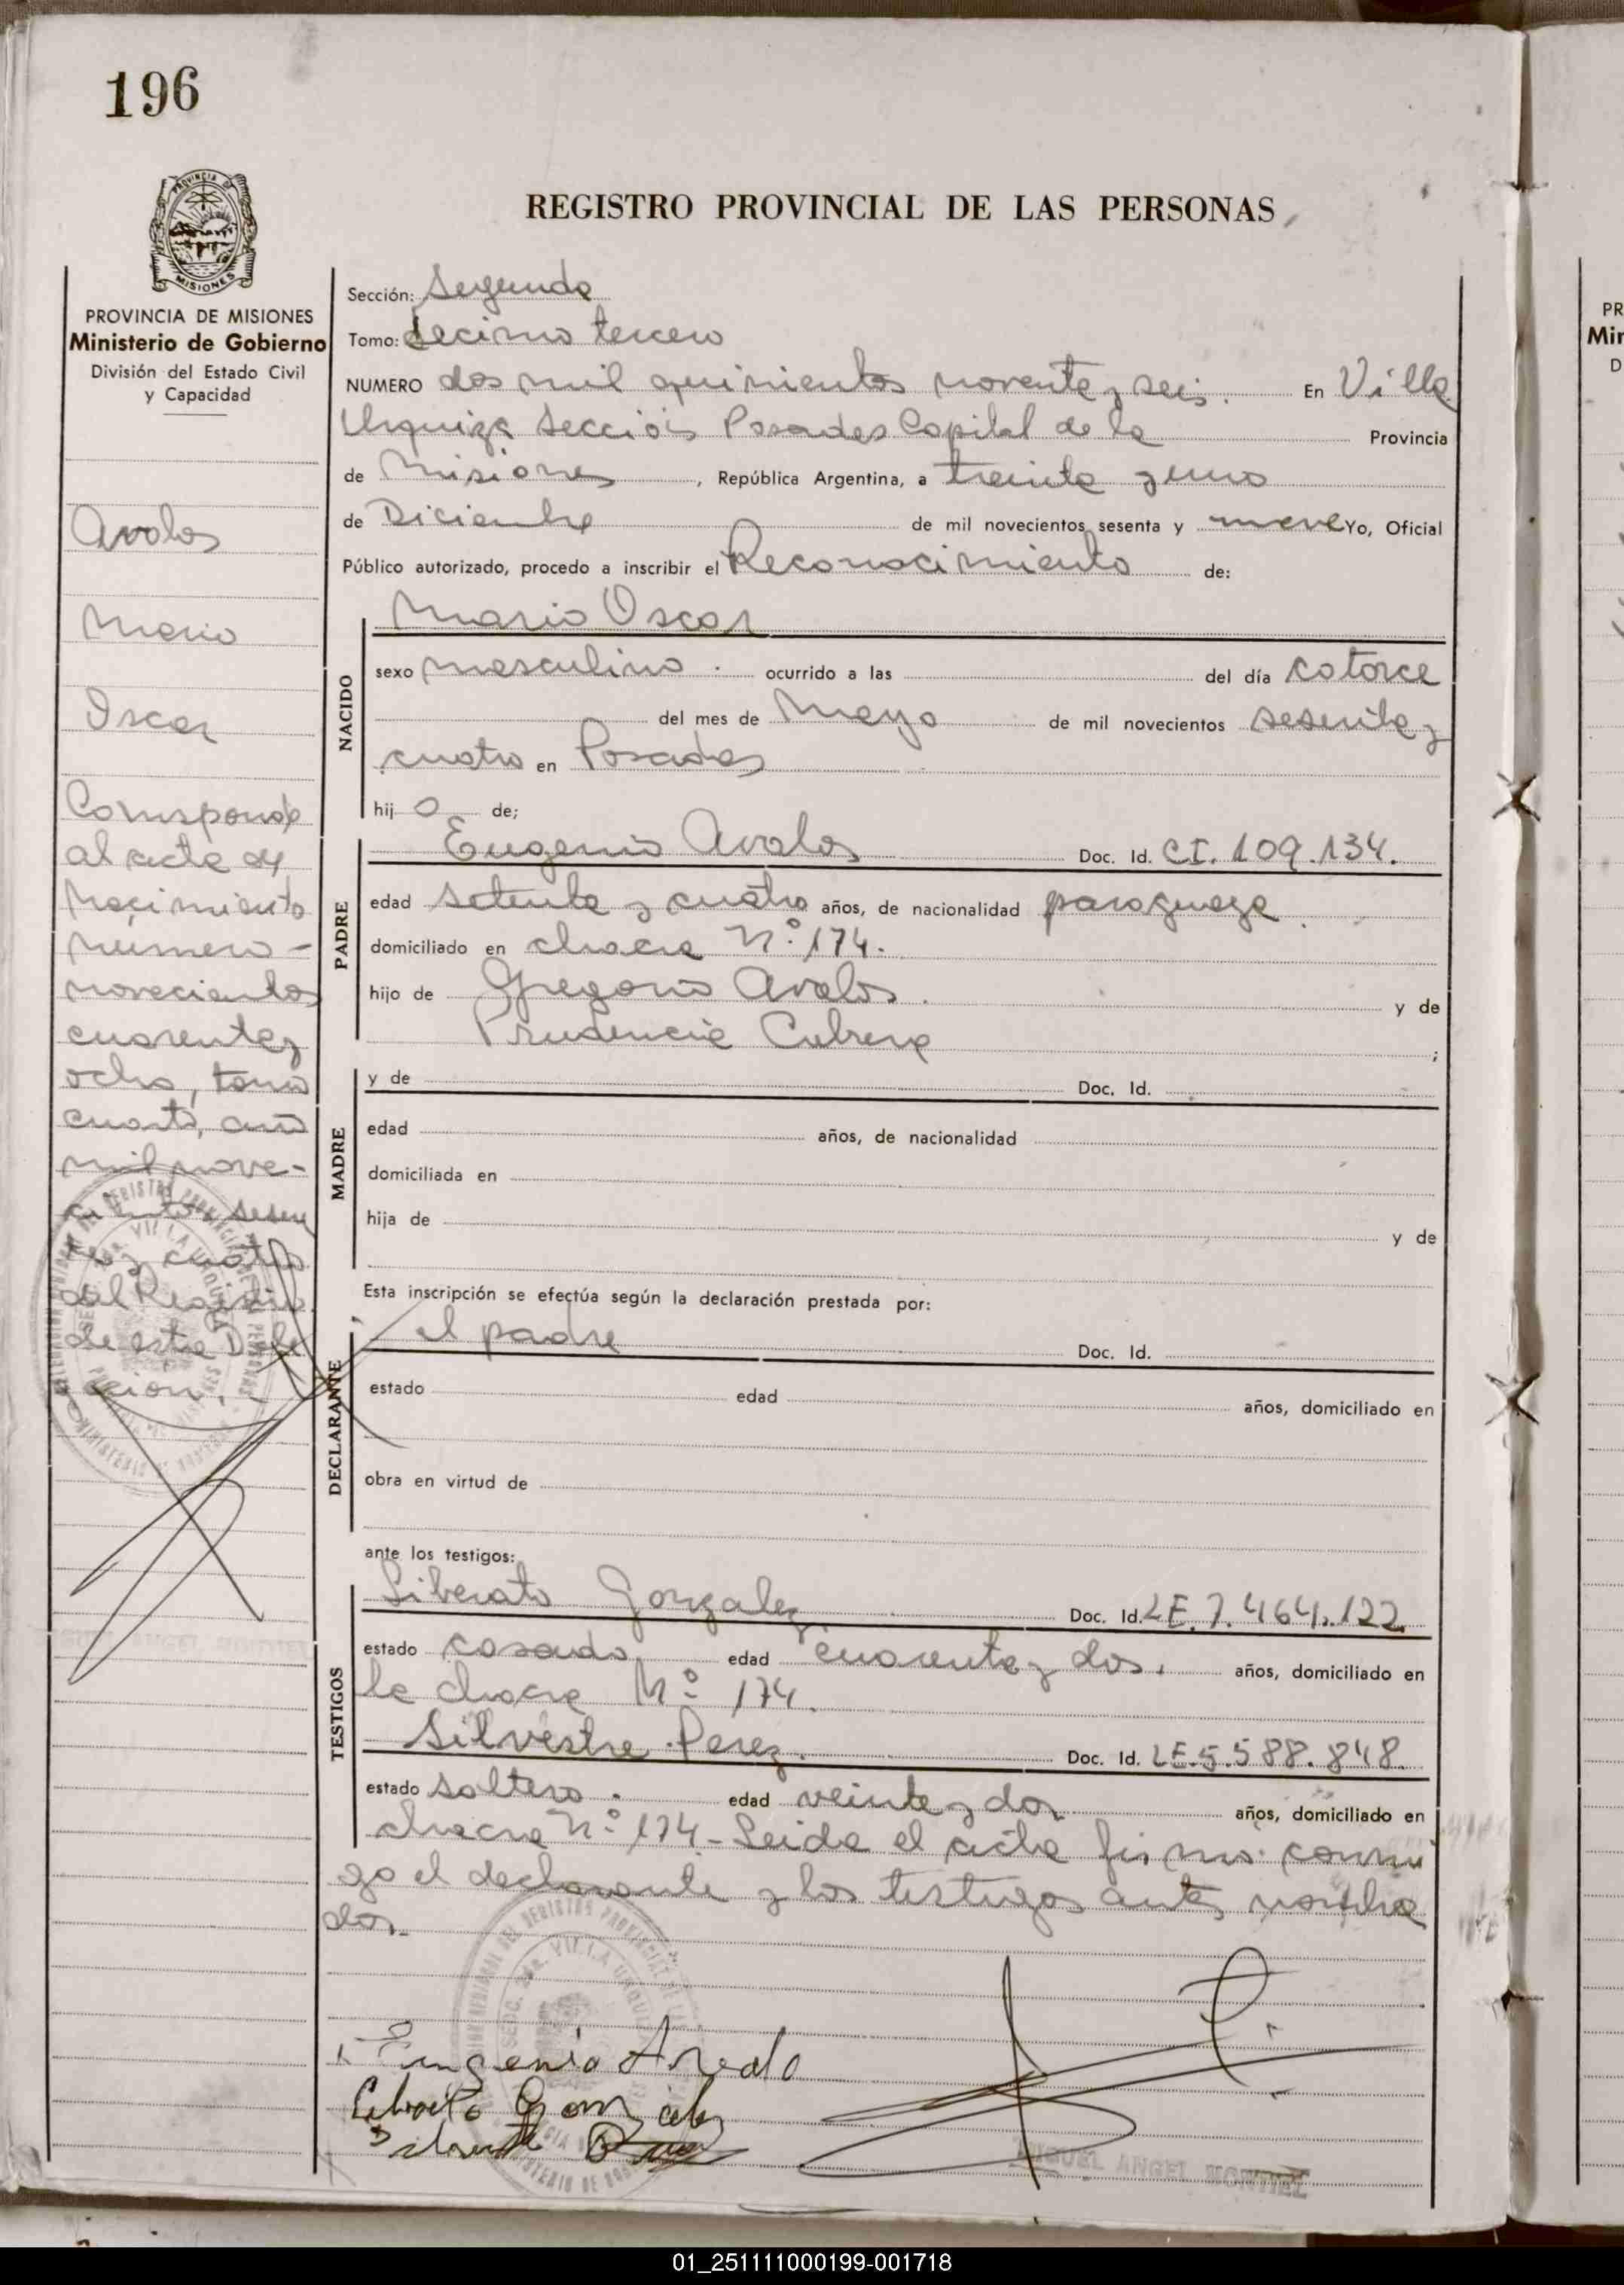 196
PROVINCIA DE
MISIONES
REGISTRO PROVINCIAL DE LAS PERSONAS
PROVINCIA DE MISIONES
Ministerio de Gobierno
División del Estado Civil
y Capacidad
Avalos
Mario
Oscar
Corresponde
al acta de
Nacimiento
número -
novecientos
cuarenta y
ocho, tomo
cuarto, año
mil nove-
cientos sesen
ta y cuatro
del Registro
de esta Dele
gacion.
Sección: Segunda
Tomo: decimo tercero
NUMERO dos mil quinientos noventa y seis. En Villa
Urquiza Sección Posadas Capital de la Provincia
de Misiones, República Argentina, a treinta y uno
de Diciembre de mil novecientos sesenta y nueve Yo, Oficial
Público autorizado, procedo a inscribir el Reconocimiento de:
NACIDO
Mario Oscar
sexo masculino. ocurrido a las del día catorce
del mes de Mayo de mil novecientos sesenta y
cuatro en Posadas
hij o de;
PADRE
Eugenio Avalos Doc. Id. CI. 109.134.
edad setenta y cuatro años, de nacionalidad paraguaya.
domiciliado en chacra N.º 174.
hijo de Gregorio Avalos. y de
Prudencia Cabrera ;
MADRE
y de Doc. Id.
edad años, de nacionalidad
domiciliada en
hija de y de
Esta inscripción se efectúa según la declaración prestada por:
DECLARANTE
el padre Doc. Id.
estado edad años, domiciliado en
obra en virtud de
ante los testigos:
TESTIGOS
Liberato Gonzalez Doc. Id. LE. 7.464.122.
estado casado edad cuarenta y dos. años, domiciliado en
la chacra Nº 174.
Silvestre Perez. Doc. Id. LE.5.588.848.
estado soltero. edad veinte y dos años, domiciliado en
chacra N.º 174 - Leida el acta firma conmi
go el declarante y los testigos antes nombra
dos.
Eugenio
Gonzalez
MIGUEL ANGEL MONTIEL
PR
Mir
D
01_251111000199-001718